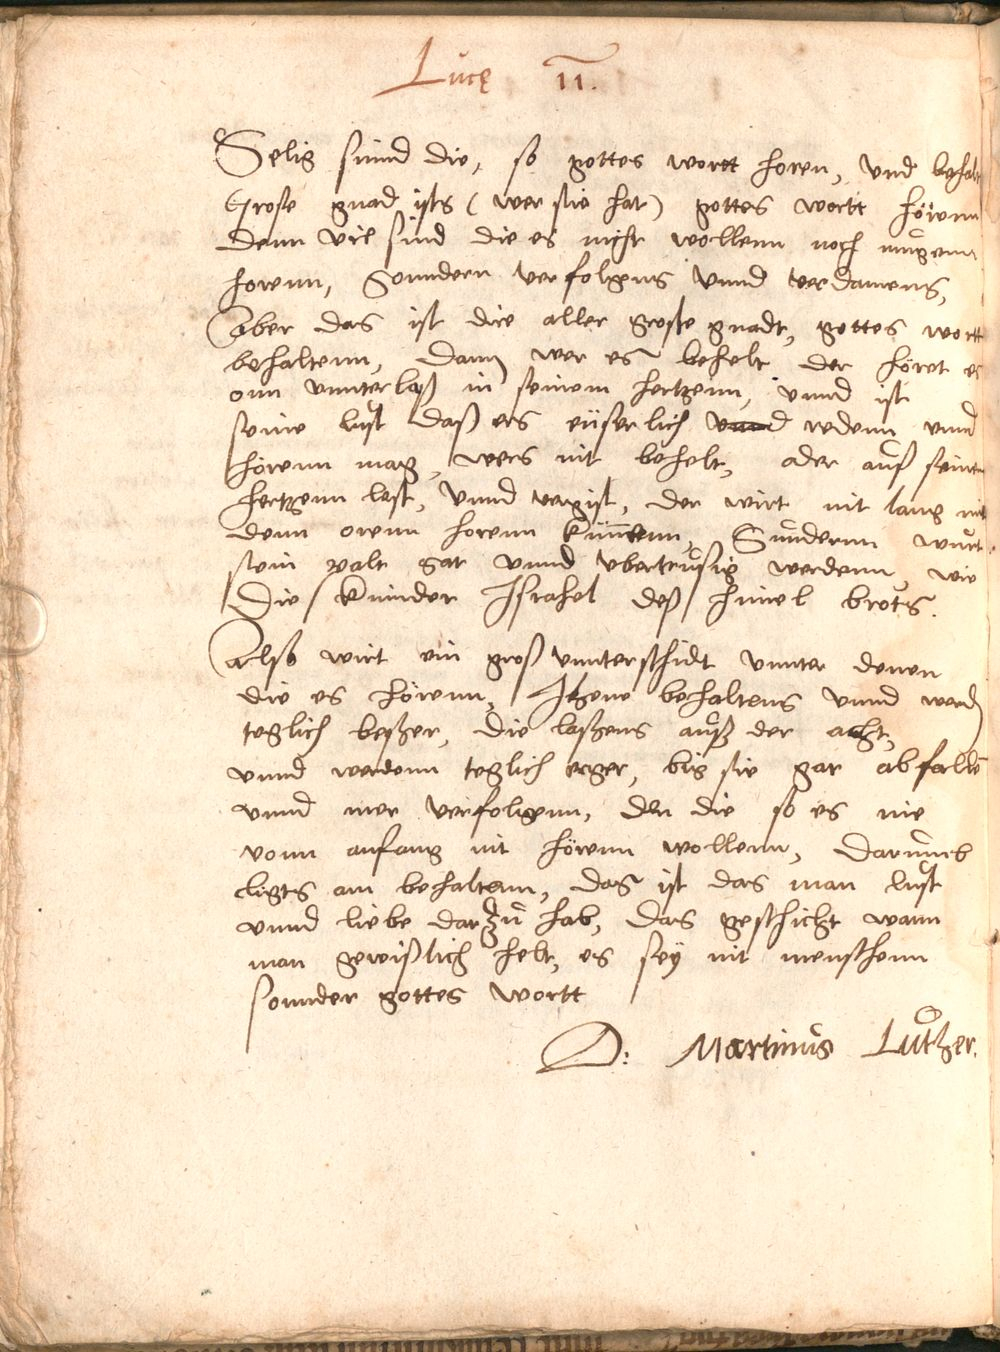 Lucę 11.
Selig seind die, so gottes wortt horen, vnd behalt
Grose gnad ists (wer sie hat) gottes wortt hörenn
denn viel sind die es nicht wollenn noch mügenn
horenn, Sonndern verfolgens vnnd verdamens,
Aber das ist die aller groste gnadt, gottes wortt
behaltenn, Dann wer es behelt der höret es
onn vnnterlaß in seinem hertzenn, vnnd ist
seine lust daß ers eüserlich redenn vnnd
hörenn mag, wers nit behelt, ader auß seinem
hertzenn lest, vnnd vergist, der wirt nit lang mit
denn orenn horenn künnenn, Sunndernn wurt
sein palt sat vnnd vberdrusig werdenn, wie
Die Kinnder Israhel deß himel brots.
Also wirt ein groß vnnterschidt vnnter denen
die es hörenn, Ihene behaltens vnnd werden
teglich beßer, die laßens auß der acht,
vnnd werdenn teglich erger, bis sie gar abfallen
vnnd mer verfolgenn, den die so es nie
vonn anfang nit hörenn wollenn, Darumb
ligts am behaltenn, das ist das man lust
vnnd liebe darzu hab, Das geschicht wann
man gewißlich helt, es sey nit menschenn
sonnder gottes wortt
D: Martinus Luther.